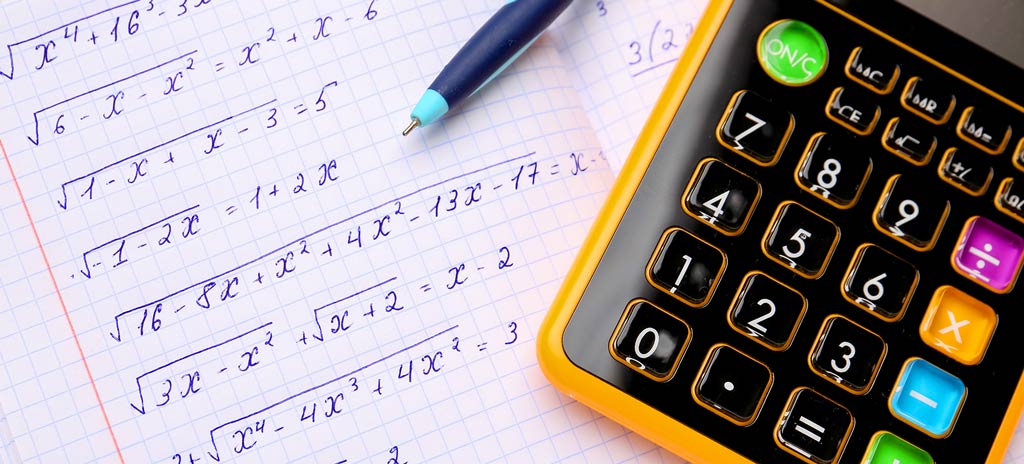 √x⁴ + 16³ - 3x
√6 - x - x² = x² + x - 6
√1 - x + x - 3 = 5
√-1 - 2x = 1 + 2x
√16 - 8x + x² + 4x² - 13x - 17 = x -
√3x - x² + √x + 2 = x - 2
+ √x⁴ - 4x³ + 4x² = 3
2
3
3(2
ON/C
CE
√
+/-
7
8
9
÷
4
5
6
×
1
2
3
-
0
.
=